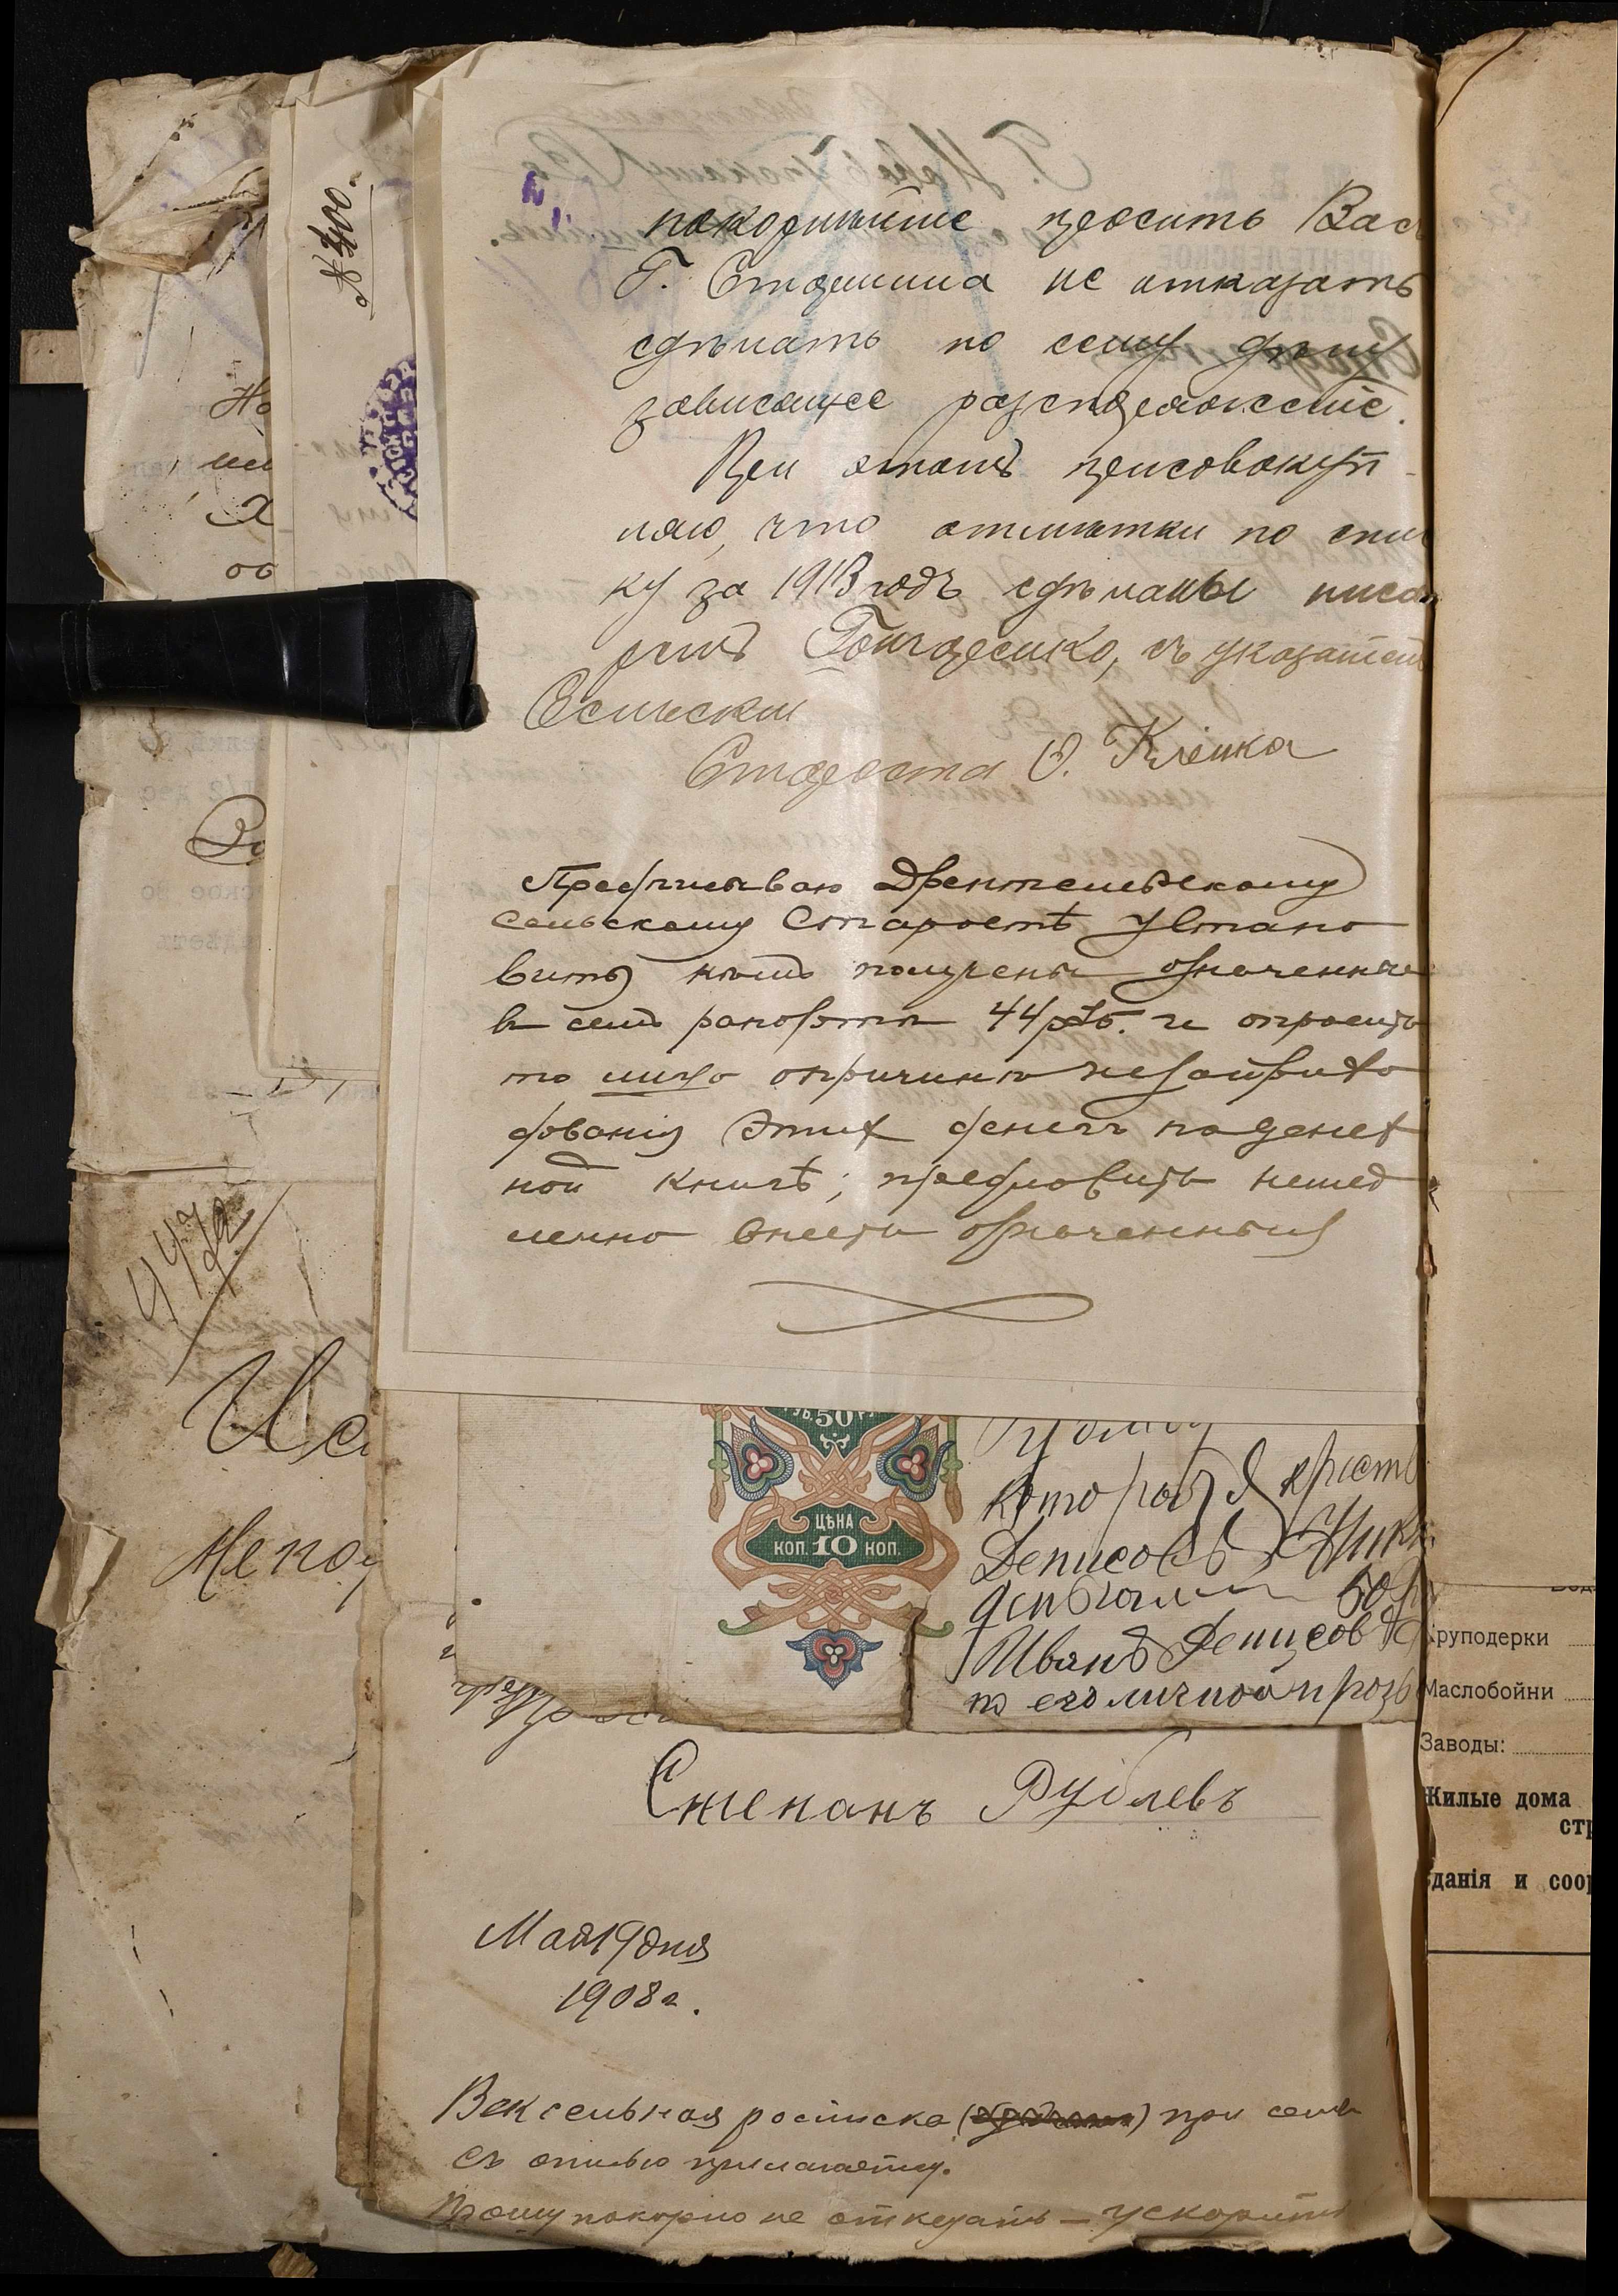 № 400.
покорнѣйше просить Вас
Г. Старшина не отказать
сдѣлать по сему дѣлу
зависящее разспоряженіе.
При этомъ присовокуп-
ляю, что отмѣтки по спис
ку за 1913 годъ сдѣланы писа
ремъ Гончаренко, съ указателем
Есипски
Староста О. Клѣшка
Предписываю Дрентельнскому
сельскому Старостѣ устано
вить кѣмъ получены означенные
в семъ рапортѣ 44 руб. и опросить
то лицо о причинѣ незаприхо
дованія этих денегъ по денеж
ной книгѣ; предложить немед
ленно внести означенныя
Но
Х
об
44 р
Ис
Непо
50
ЦѢНА
КОП. 10 КОП.
которой я крест
Денисовъ
50 р
Иванъ Денисовъ
по его личной прозь
Степанъ Рублевъ
Мая 19 дня
1908 г.
Вексельная росписка при семъ
съ описью прилагается.
Прошу покорно не отказать – ускорить
Круподерки
Маслобойни
Заводы:
Жилые дома
стр
зданія и соор